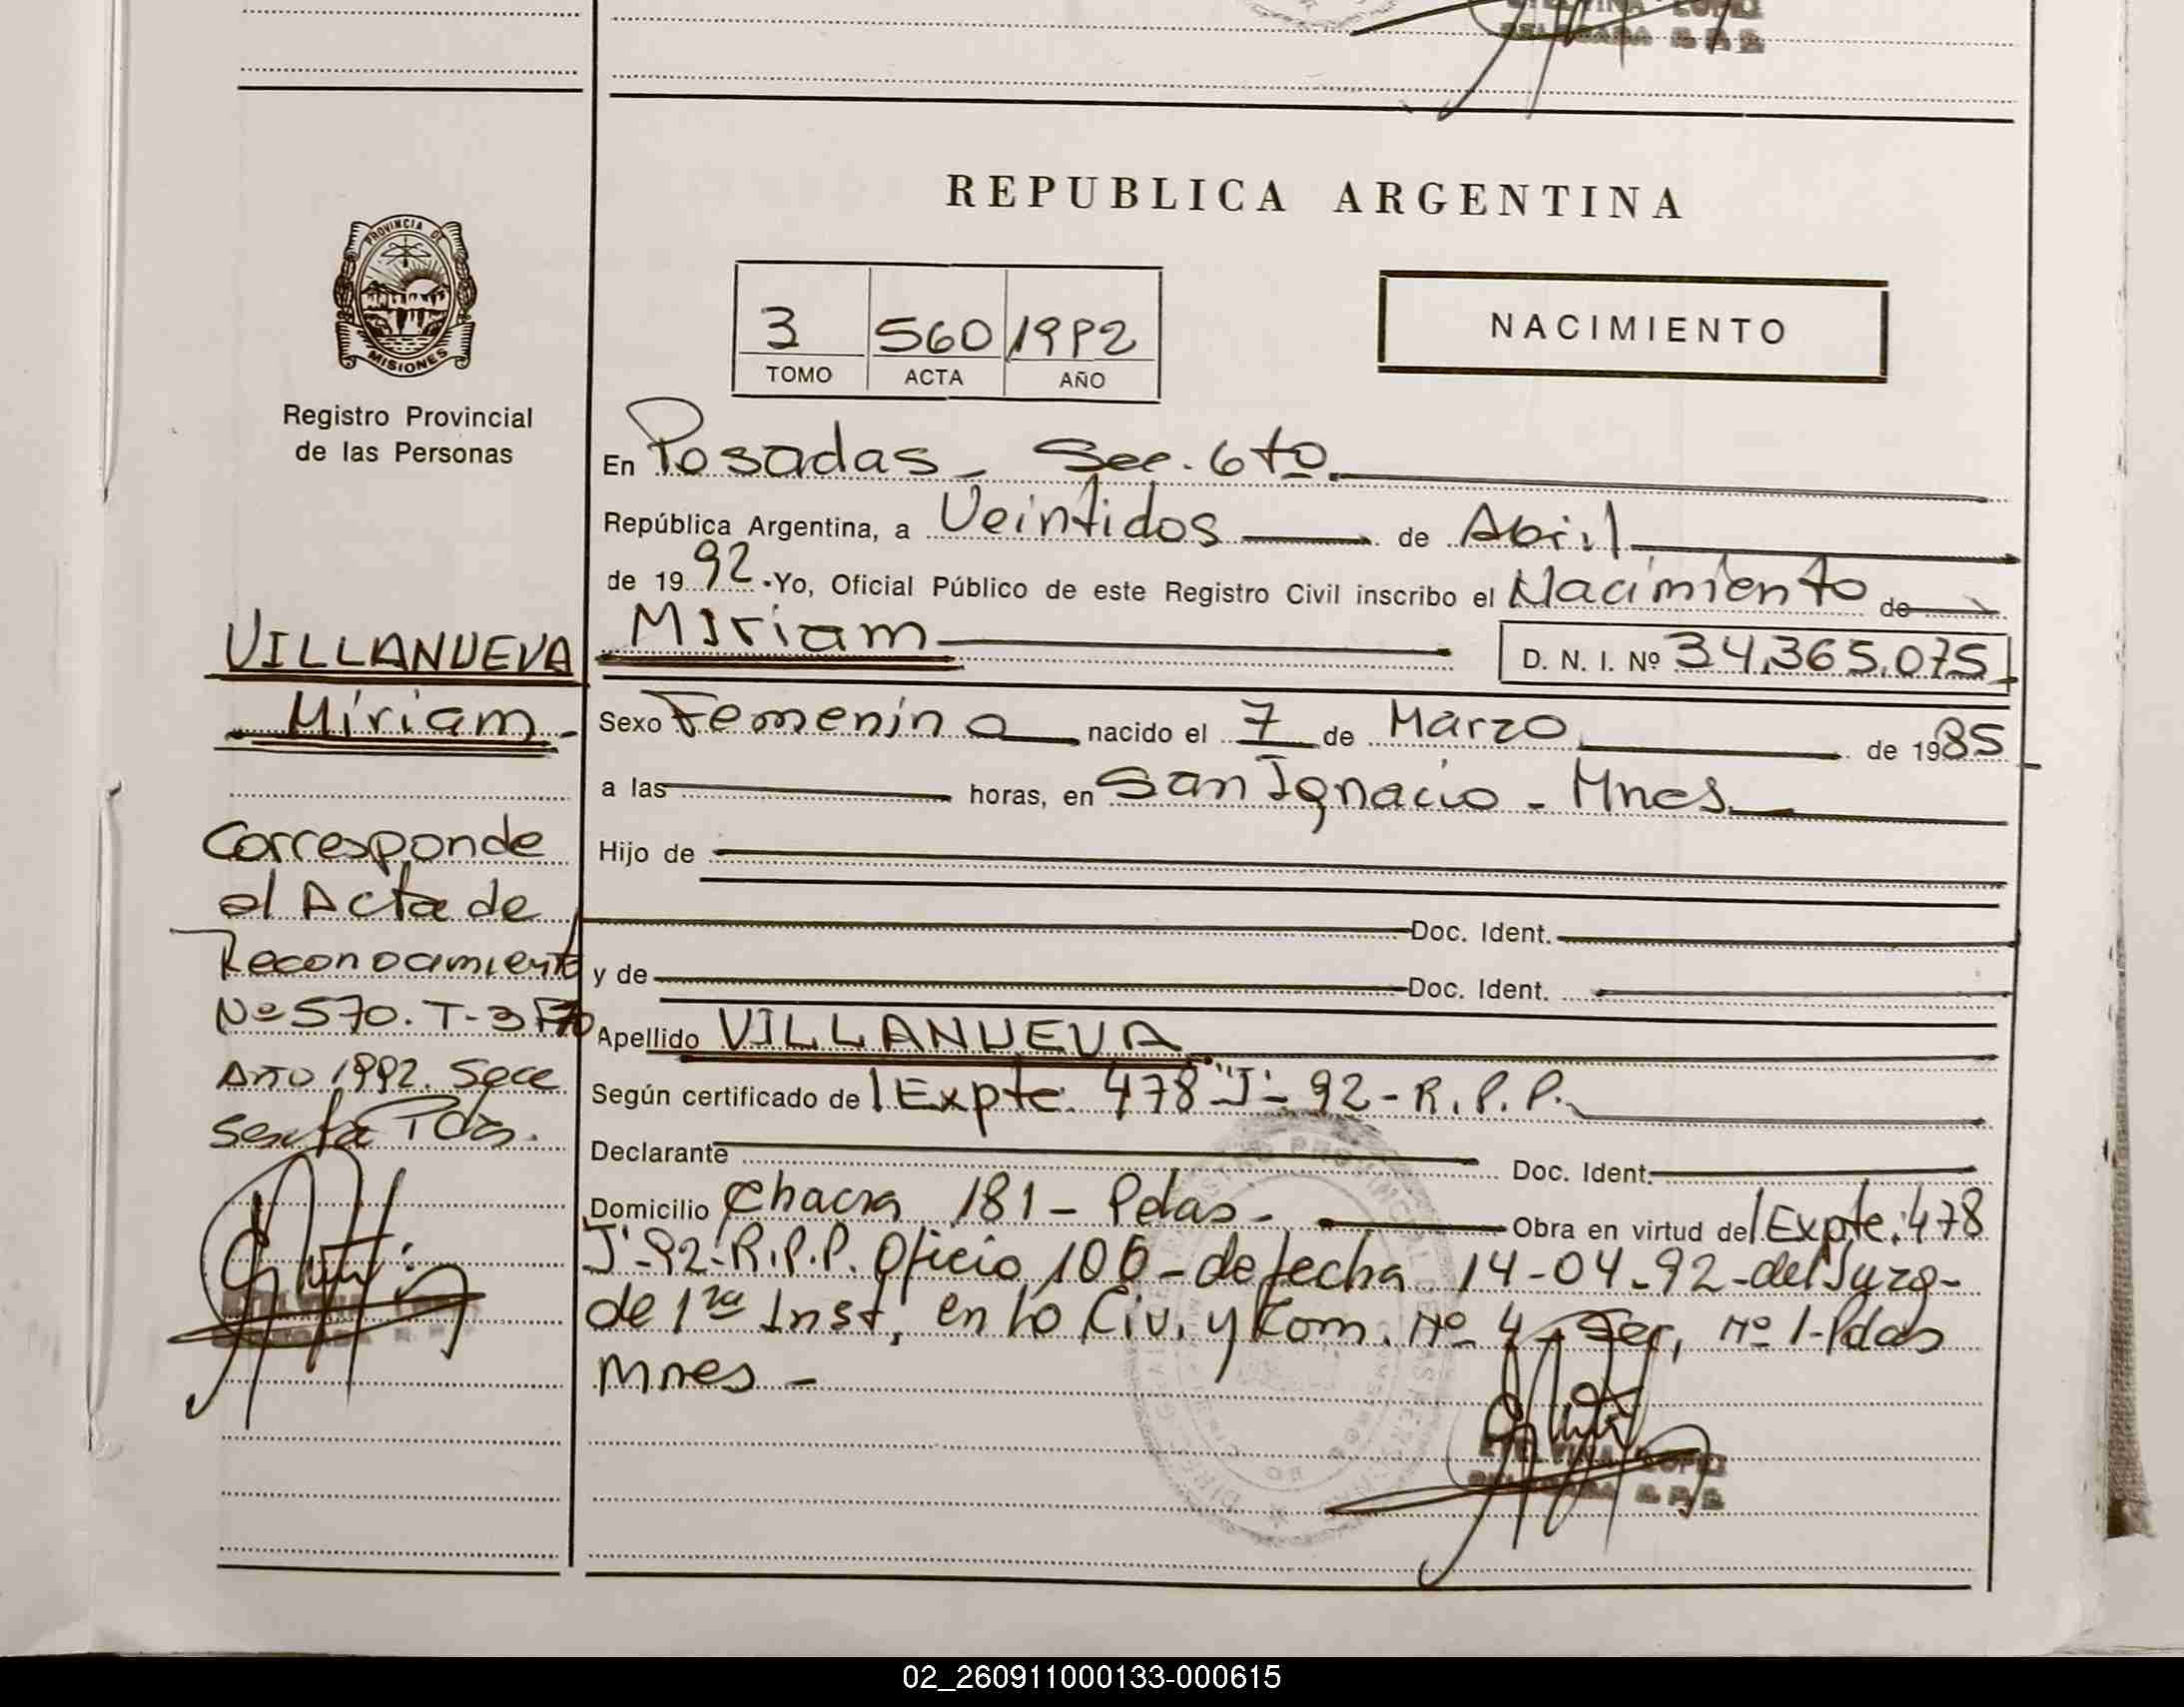 REPUBLICA ARGENTINA
PROVINCIA DE
MISIONES
Registro Provincial
de las Personas
3 560 1992
TOMO ACTA AÑO
NACIMIENTO
En Posadas - Sec. 6to.
República Argentina, a Veintidos de Abril
de 1992.-Yo, Oficial Público de este Registro Civil inscribo el Nacimiento de
Miriam
D. N. I. Nº 34.365.075
Sexo Femenino nacido el 7 de Marzo de 1985
a las horas, en San Ignacio - Mnes
Hijo de
Doc. Ident.
y de Doc. Ident.
Apellido VILLANUEVA
Según certificado de Expte. 478 "J"- 92 - R.P.P.
Declarante Doc. Ident.
Domicilio Chacra 181 - Pdas - Obra en virtud de Expte. 478
J-92-R.P.P. Oficio 100 - de fecha 14-04-92-del Juzg-
de 1ra Inst, en lo Civ. y Com. Nº 4 - Sec, Nº 1-Pdas
Mnes -
VILLANUEVA
Miriam
Corresponde
al Acta de
Reconocimiento
Nº 570. T-3 F70
Año 1992. Secc
Sexta Pdas.
ETELVINA LOPEZ
DELEGADA R. P. P.
02_260911000133-000615